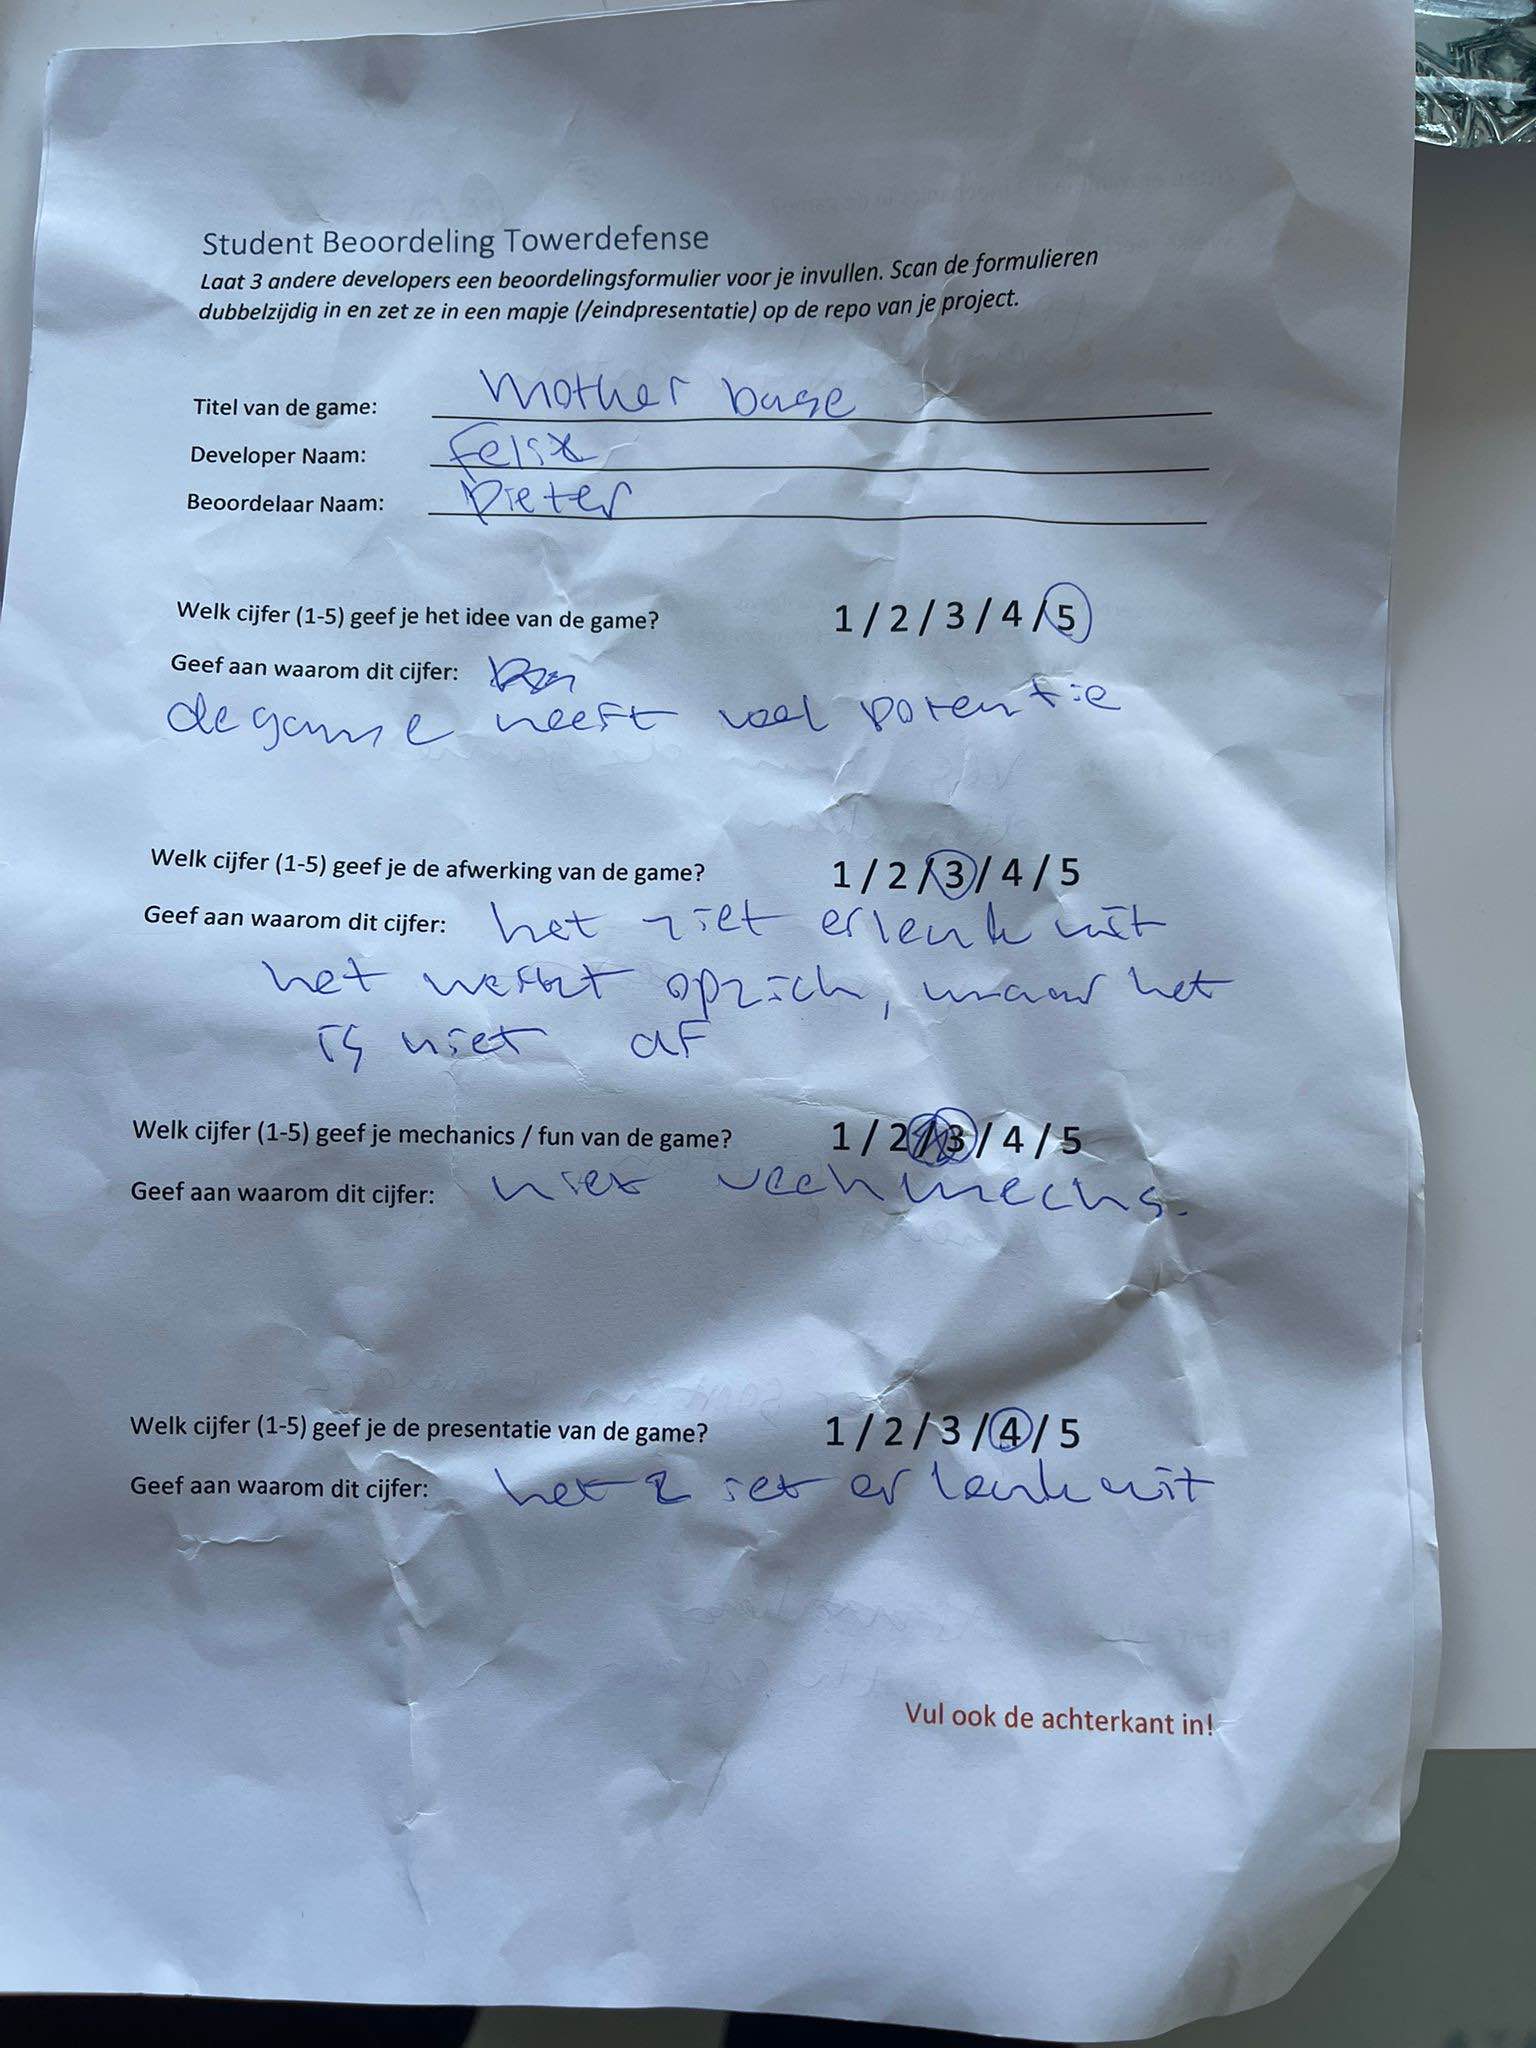 Student Beoordeling Towerdefense
Laat 3 andere developers een beoordelingsformulier voor je invullen. Scan de formulieren
dubbelzijdig in en zet ze in een mapje (/eindpresentatie) op de repo van je project.
Titel van de game: Mother base
Developer Naam: Felix
Beoordelaar Naam: Pieter
Welk cijfer (1-5) geef je het idee van de game? 1 / 2 / 3 / 4 / 5
Geef aan waarom dit cijfer:
de game heeft veel potentie
Welk cijfer (1-5) geef je de afwerking van de game? 1 / 2 / 3 / 4 / 5
Geef aan waarom dit cijfer: het ziet er leuk uit
het werkt opzich, maar het
is niet af
Welk cijfer (1-5) geef je mechanics / fun van de game? 1 / 2 / 3 / 4 / 5
Geef aan waarom dit cijfer: niet veel mechs.
Welk cijfer (1-5) geef je de presentatie van de game? 1 / 2 / 3 / 4 / 5
Geef aan waarom dit cijfer: het ziet er leuk uit
Vul ook de achterkant in!